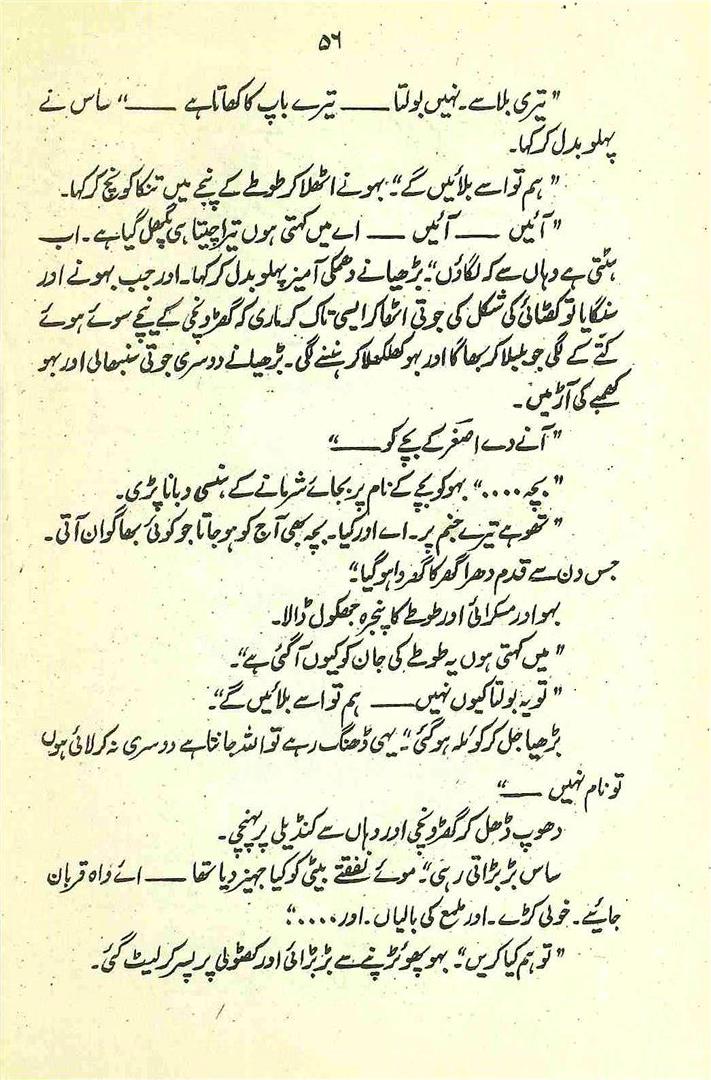 ۵۶
"تیری بلا سے۔ نہیں بولتا —— تیرے باپ کا کھاتا ہے ——" ساس نے
پہلو بدل کر کہا۔
"ہم تو اسے بلائیں گے"۔ بہو نے اٹھلا کر طوطے کے پنجے میں تنکا کونچ کر کہا۔
"آئیں —— آئیں —— اے میں کہتی ہوں تیرا چیتا ہی پگھل گیا ہے۔ اب
ہٹتی ہے وہاں سے کہ لگاؤں"۔ بڑھیا نے دھمکی آمیز پہلو بدل کر کہا۔ اور جب بہو نے اور
سنگایا تو کھٹائی کی شکل کی جوتی اٹھا کر ایسی تاک کر ماری کہ گھڑونچی کے نیچے سوئے ہوئے
کتّے کے لگی جو بلبلا کر بھاگا اور بہو کھلکھلا کر ہنسنے لگی۔ بڑھیا نے دوسری جوتی سنبھالی اور بہو
کھمبے کی آڑ میں۔
"آنے دے اصغر کے بچے کو ——"
"بچہ ...." بہو کو بچے کے نام پر بجائے شرمانے کے ہنسی دبانا پڑی۔
"تھو ہے تیرے جنم پر۔ اے اور کیا۔ بچہ بھی آج کو ہو جاتا جو کوئی بھاگوان آتی۔
جس دن سے قدم دھرا گھر کا گھروا ہو گیا"۔
بہو اور مسکرائی اور طوطے کا پنجرہ جھکول ڈالا۔
"میں کہتی ہوں یہ طوطے کی جان کو کیوں آ گئی ہے"۔
"تو یہ بولتا کیوں نہیں —— ہم تو اسے بلائیں گے"۔
بڑھیا جل کر کوئلہ ہو گئی"۔ یہی ڈھنگ رہے تو اللہ جانتا ہے دوسری نہ کر لائی ہوں
تو نام نہیں ——"
دھوپ ڈھل کر گھڑونچی اور وہاں سے کنڈیلی پر پہنچی۔
ساس بڑبڑاتی رہی"۔ موئے نفقتے بیٹی کو کیا جہیز دیا تھا —— اے واہ قربان
جائیے۔ خولی کڑے۔ اور ملمع کی بالیاں۔ اور ....“
"تو ہم کیا کریں"۔ بہو پھوئڑ پنے سے بڑبڑائی اور کھٹولی پر پسر کر لیٹ گئی۔